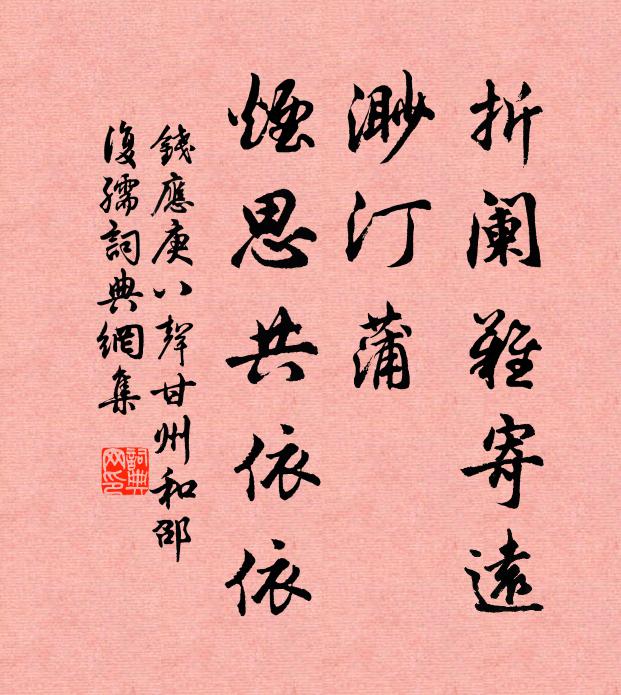 折阑难寄遠
渺汀蒲
煙思共依依
錢應庚八聲甘州和邵
復孺詞典網集
詞典网印